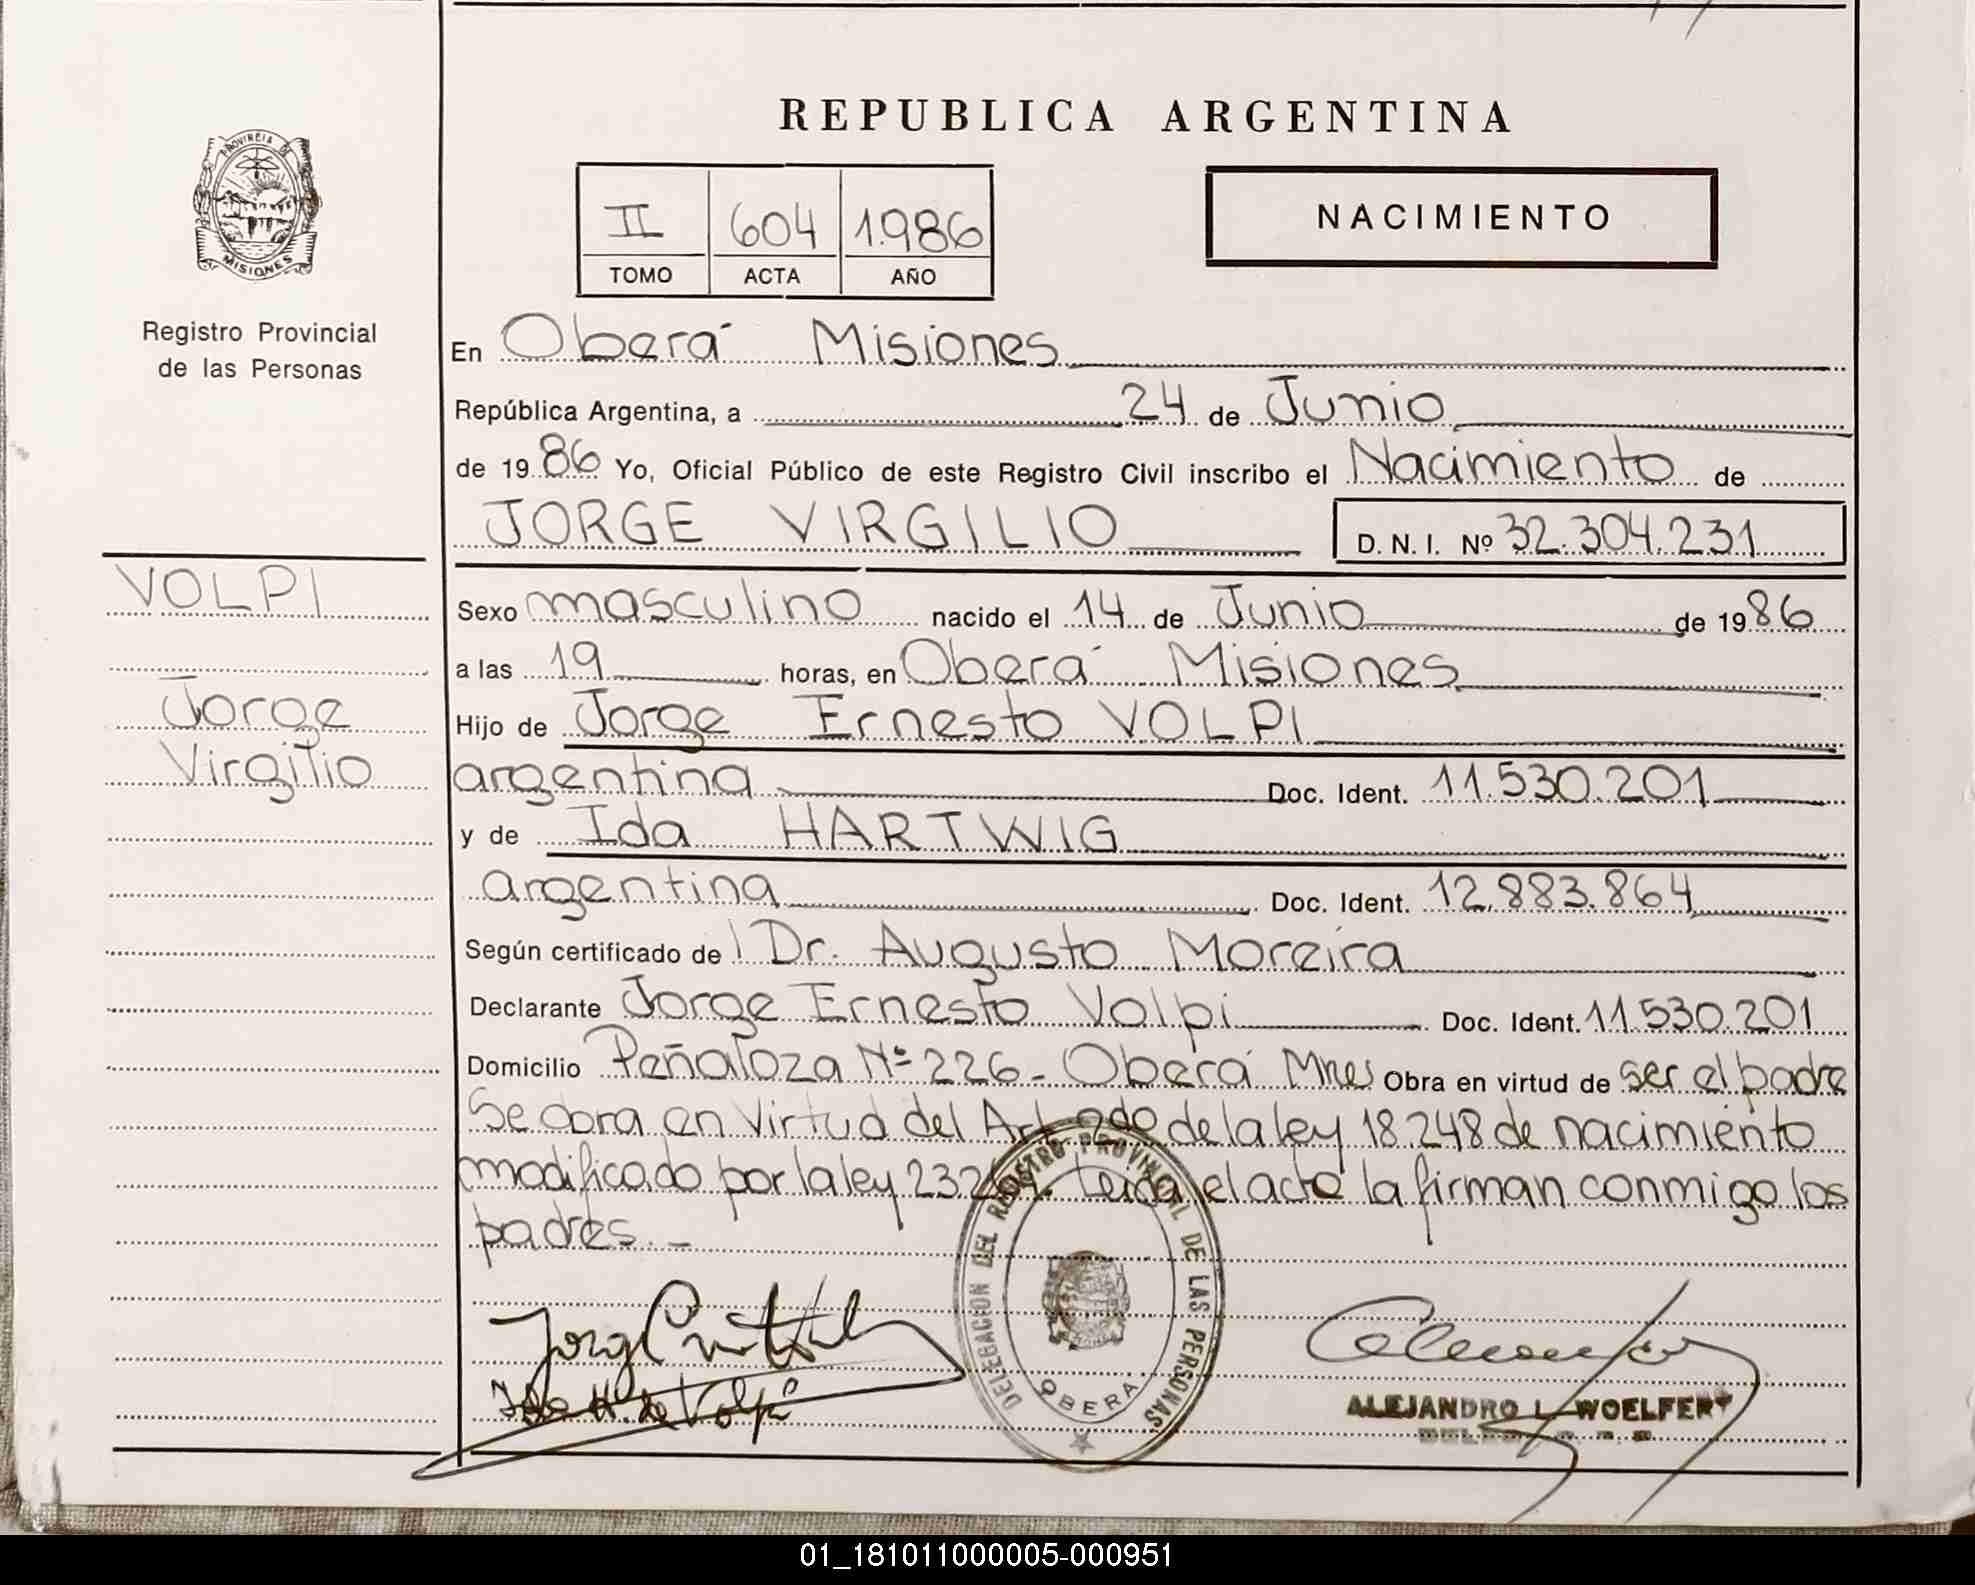 REPUBLICA ARGENTINA
PROVINCIA DE
MISIONES
Registro Provincial
de las Personas
II 604 1.986
TOMO ACTA AÑO
NACIMIENTO
En Oberá Misiones
República Argentina, a 24 de Junio
de 1986 Yo, Oficial Público de este Registro Civil inscribo el Nacimiento de
JORGE VIRGILIO D. N. I. Nº 32.304.231
VOLPI
Jorge
Virgilio
Sexo masculino nacido el 14 de Junio de 1986
a las 19 horas, en Oberá Misiones
Hijo de Jorge Ernesto VOLPI
argentina Doc. Ident. 11.530.201
y de Ida HARTWIG
argentina Doc. Ident. 12.883.864
Según certificado de Dr. Augusto Moreira
Declarante Jorge Ernesto Volpi Doc. Ident. 11.530.201
Domicilio Peñaloza Nº 226 - Oberá Mnes Obra en virtud de ser el padre
Se obra en Virtud del Art. 2do de la ley 18.248 de nacimiento
modificado por la ley Leida el acta la firman conmigo los
padres. -
DELEGACION DEL REGISTRO PROVINCIAL DE LAS PERSONAS
OBERA
Ida H. de Volpi
ALEJANDRO L. WOELFERT
01_181011000005-000951